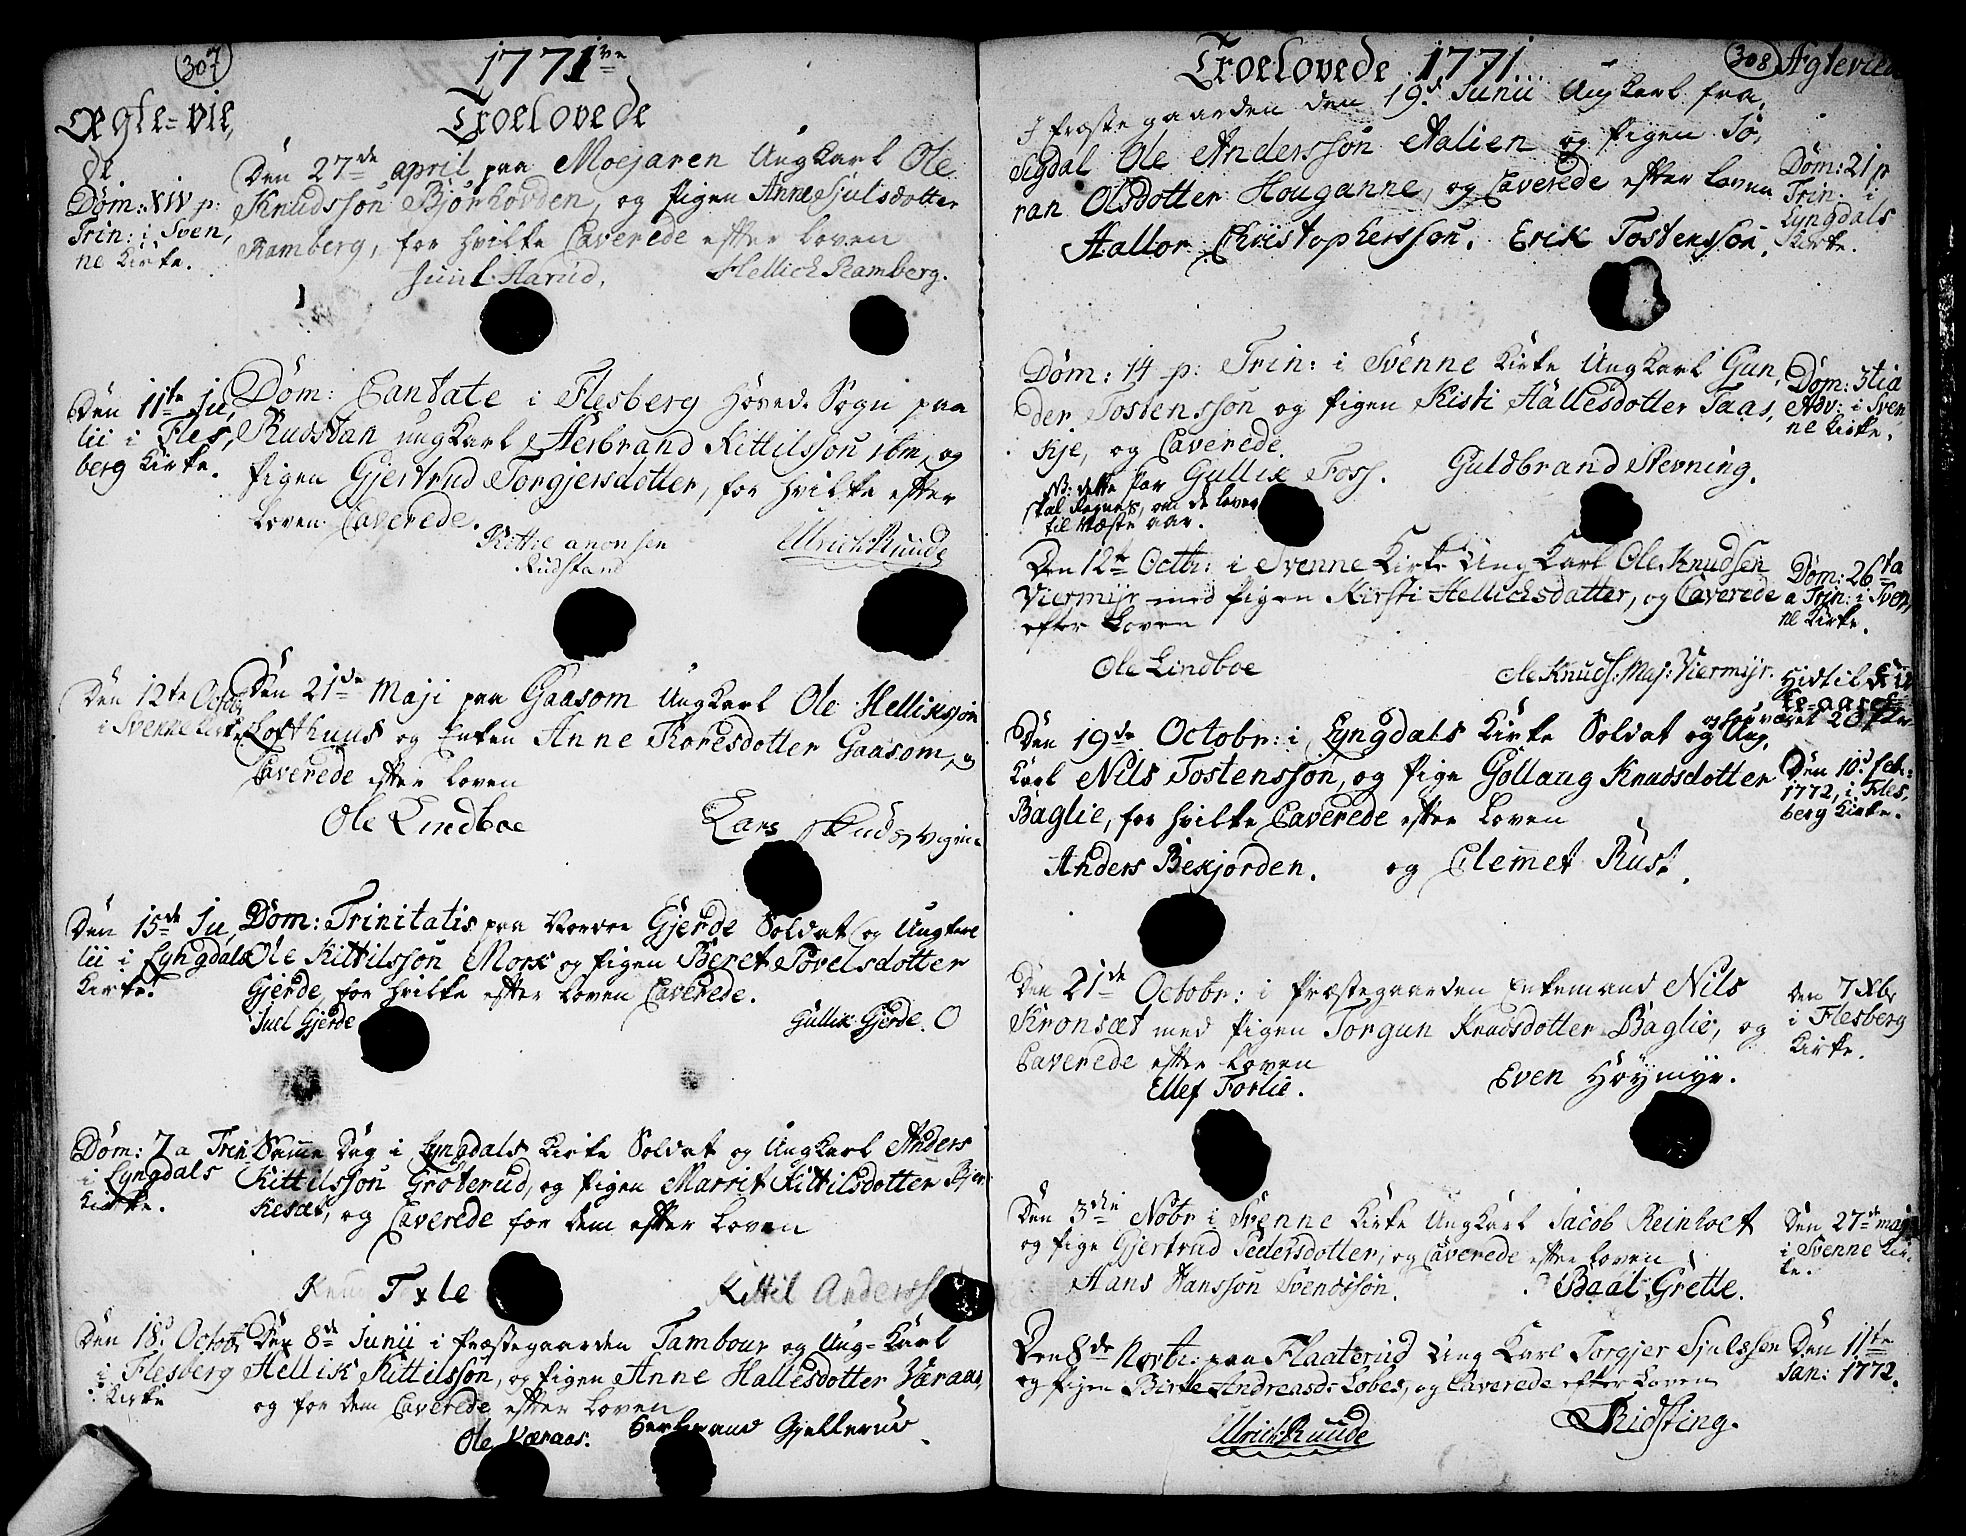 307
1771ve
Ægte-vie,
de
Troelovede
Den 27de april paa Moejaren Ungkarl Ole
Knudssøn Bjørhovden, og pigen Anne Sjulsdotter
Ramberg, for hvilke Caverede efter loven
Juul Aarud. Hellich Ramberg.
Dom: XIV p:
Trin: i Sven,
ne Kirke.
Dom: Cantate i Flesberg Hoved-Sogn paa
Rudstan ungkarl Herbrand Kittilssøn ibm, og
pigen Gjertrud Torgjersdotter, for hvilke efter
loven Caverede.
Kittil anonsen
Rudstand
Ulrich Ruude
Den 11te Ju,
lii i Fles,
berg Kirke.
Den 21de Maji paa Gaasom Ungkarl Ole Helliksøn
Lofthuus og Enken Anne Toresdotter Gaasom, og
Caverede efter loven
Ole Lindboe Lars
Den 12te Octobr
i Svenne Kirke
Dom: Trinitatis paa Gjerde Soldat og Ungkarl
Ole Kittilssøn Mork og pigen Beret Povelsdotter
Gjerde, for hvilke efter loven Caverede.
Juel Gjerde Gullik Gjerde.
Den 15de Ju,
lii i Lyngdals
Kirke.
Samme Dag i Lyngdals Kirke Soldat og Ungkarl Anders
Kittilssøn Grøterud, og pigen Marrit Kittilsdotter Bjer
kesæt, og Caverede for dem efter loven
Knud Kittil Anderssø
Dom: 7 a Trin
i Lyngdals
Kirke.
Den 8de Junii i Præstegaarden Tambour og Ung-Karl
Hellik Kittilssøn, og pigen Anne Hallesdotter Væraas,
og for dem Caverede efter loven
Ole Væraas. Herbrand Gjellerud.
Den 18d Octobr
i Flesberg
Kirke
308
Troelovede 1771.
Ægteviede
I Præstegaarden den 19d Junii Ungkarl fra
Sigdal Ole Anderssøn Aalien og pigen Jø,
ran Olsdotter Houganne, og Caverede efter loven
Hallor Christopherssøn. Erik Tostenssøn.
Dom: 21 p
Trin: i
Lyngdals
Kirke.
Dom: 14 p: Trin: i Svenne Kirke Ungkarl Gun,
der Tostenssøn og pigen Kisti Hallesdotter Taas,
kje, og Caverede.
Gullik Foss. Guldbrand Stevning.
NB: dette par
skal Regnes, om de lever
til Næste aar.
Dom: 3tia
Adv: i Sven,
ne Kirke.
Den 12te Octbr: i Svenne Kirke Ung Karl Ole Knudsen
Viermyr med pigen Kirsti Hellichsdatter, og Caverede
efter Loven
Ole Lindboe Ole Knuds: Maj: Viermyr.
Dom: 26ta
a Trin: i Sven,
ne Kirke.
Hidtil Kir
ke-aaret
Den 19de Octobr: i Lyngdals Kirke Soldat og Ung,
karl Nils Tostenssøn, og pige Gollaug Knudsdotter
Baglie, for hvilke Caverede efter loven
Anders Bekjorden. og Clemmet Rust.
Den 10d febr:
1772, i Fles,
berg Kirke.
Den 21de Octobr: i Præstegaarden Enkemand Nils
Kronsæt med pigen Torgun Knudsdotter Baglie, og
Caverede efter loven
Ellef Torlie. Even Høymyr.
Den 7 Xbr
i Flesberg
Kirke.
Den 3die Nobr i Svenne Kirke Ungkarl Jacob Reinholt
og pige Gjertrud Pedersdotter, og Caverede efter loven
Hans Hanssøn Svendssøn. Baal Grette.
Den 27de maj
i Svenne Kir,
ke.
Den 8de Novbr: paa Flaaterud Ung Karl Torgjer Sjulssen
og pigen Birte Andreasd: Lobes, og Caverede efter Loven
Ulrich Ruude Ridsting.
Den 11te
Jan: 1772.